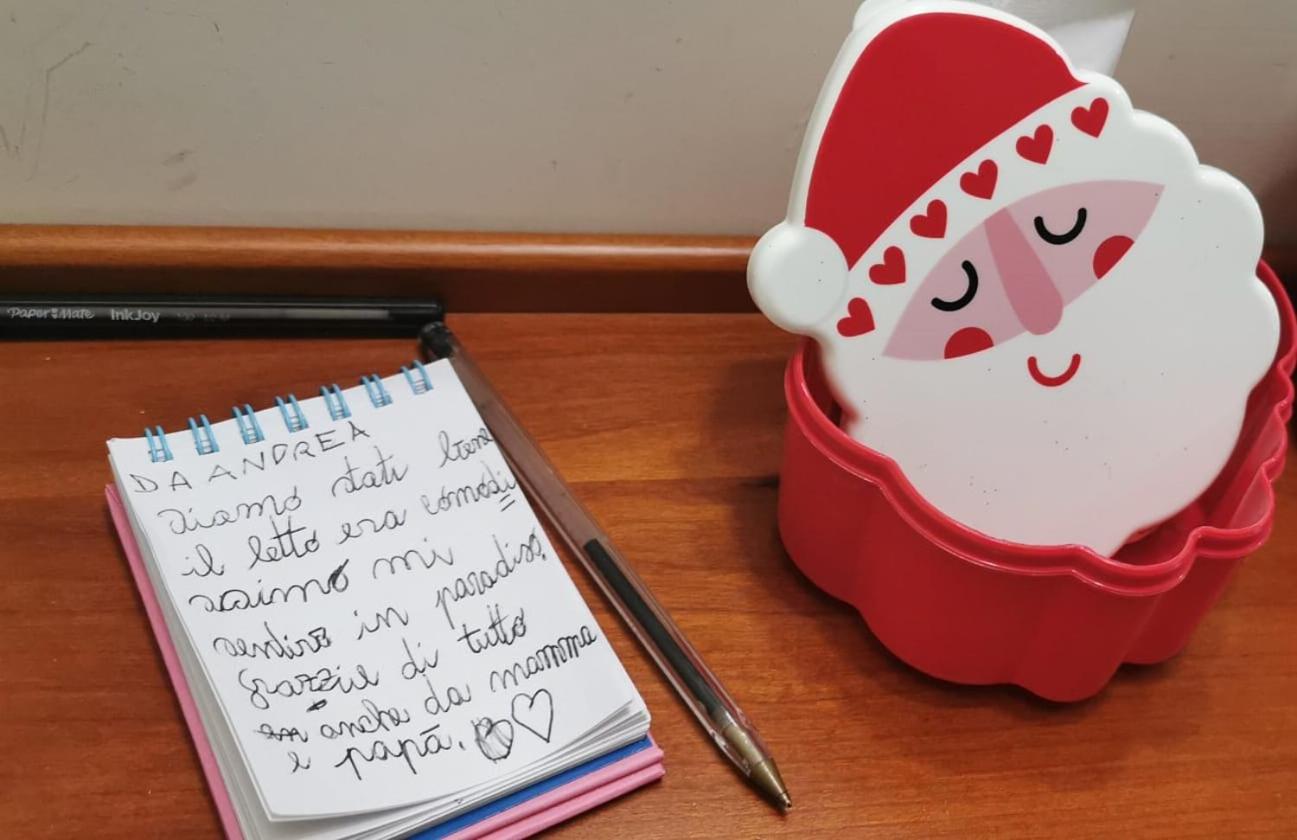 Paper Mate InkJoy
DA ANDREA
siamo stati bene
il letto era comodi
saimo mi
sentivo in paradiso,
grazzie di tutto
anche da mamma
e papà.